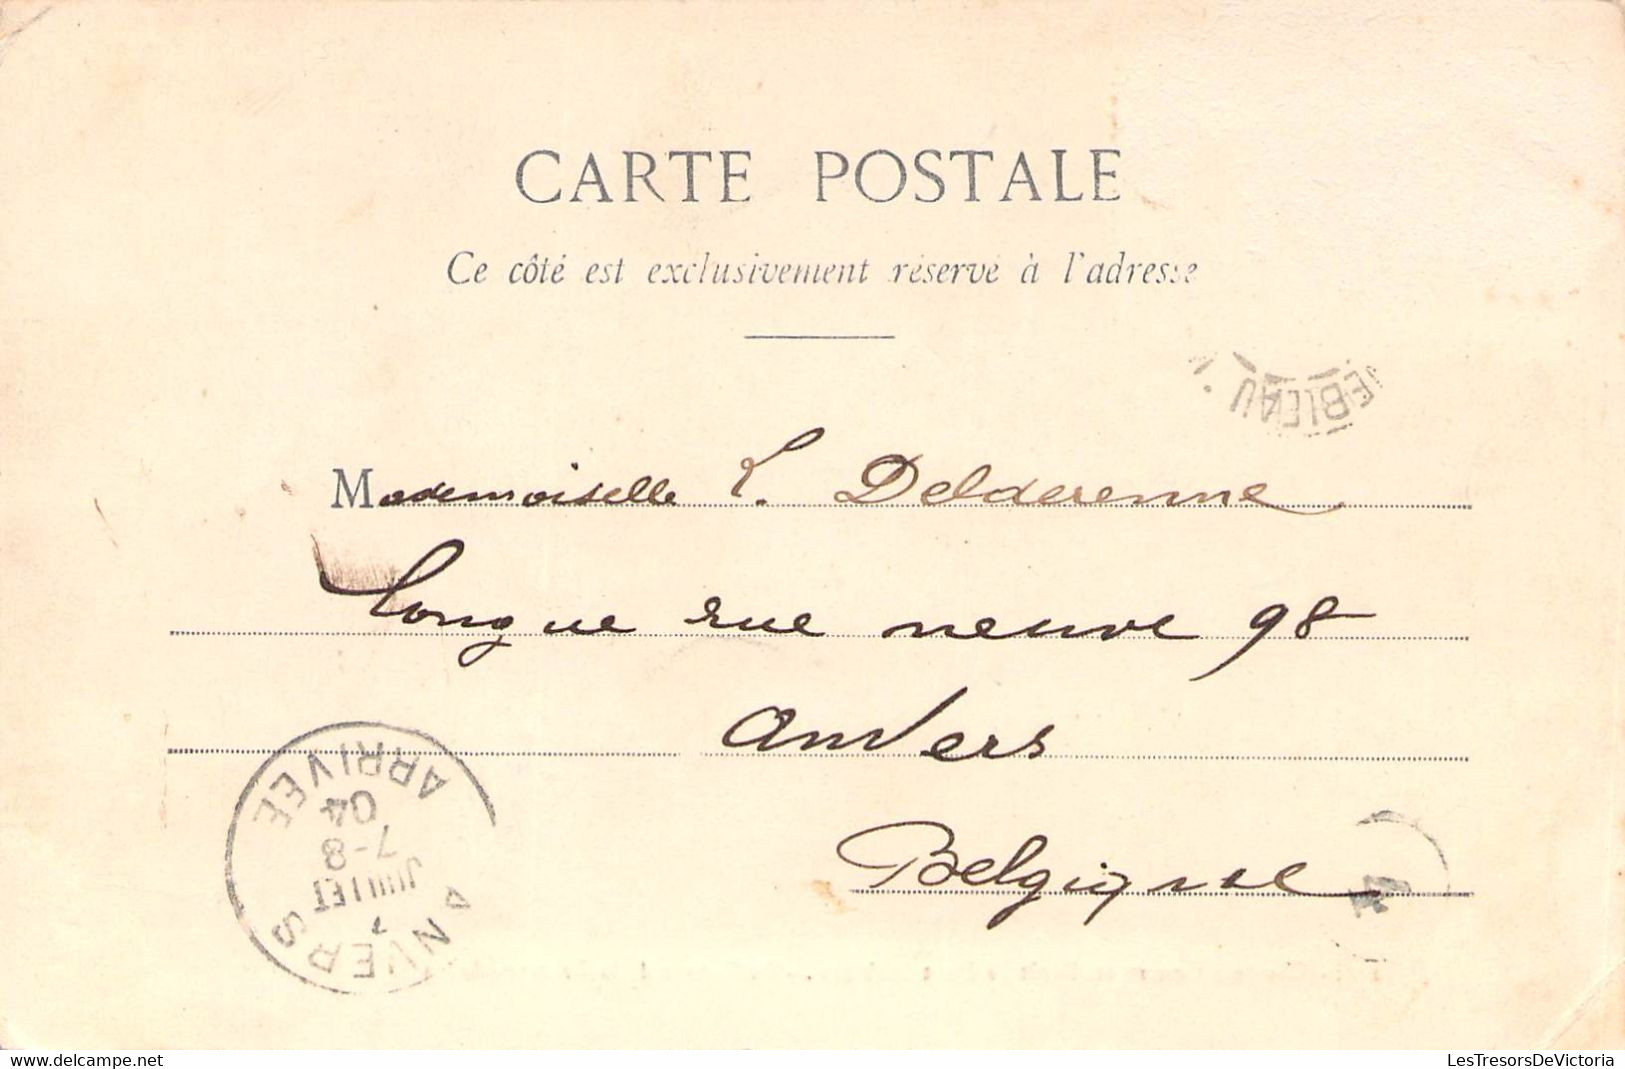 CARTE POSTALE
Ce côté est exclusivement réservé à l'adresse
EBLEAU
Mademoiselle L. Delderenne
Longue rue neuve 98
Anvers
Belgique
ANVERS
7
JUILLET
7-8
04
ARRIVEE
delcampe.net
LesTresorsDeVictoria